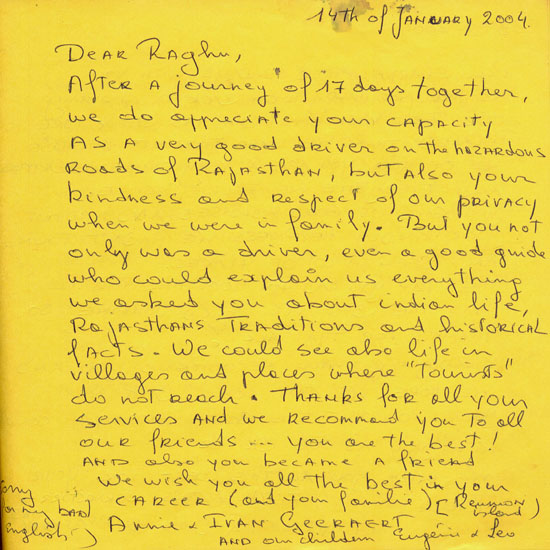 14th of January 2004.
Dear Raghu,
After a journey of 17 days together,
we do appreciate your capacity
as a very good driver on the hazardous
roads of Rajasthan, but also your
kindness and respect of our privacy
when we were in family. But you not
only was a driver, even a good guide
who could explain us everything
we asked you about indian life,
Rajasthans Traditions and historical
facts. We could see also life in
villages and places where "Tourists"
do not reach. Thanks for all your
services and we recommand you to all
our friends ... you are the best!
and also you became a friend
We wish you all the best in your
career (and your familie) (Reunion island)
Annie & Ivan Geeraert
and our children Eugénie & Leo
Sorry for my bad english